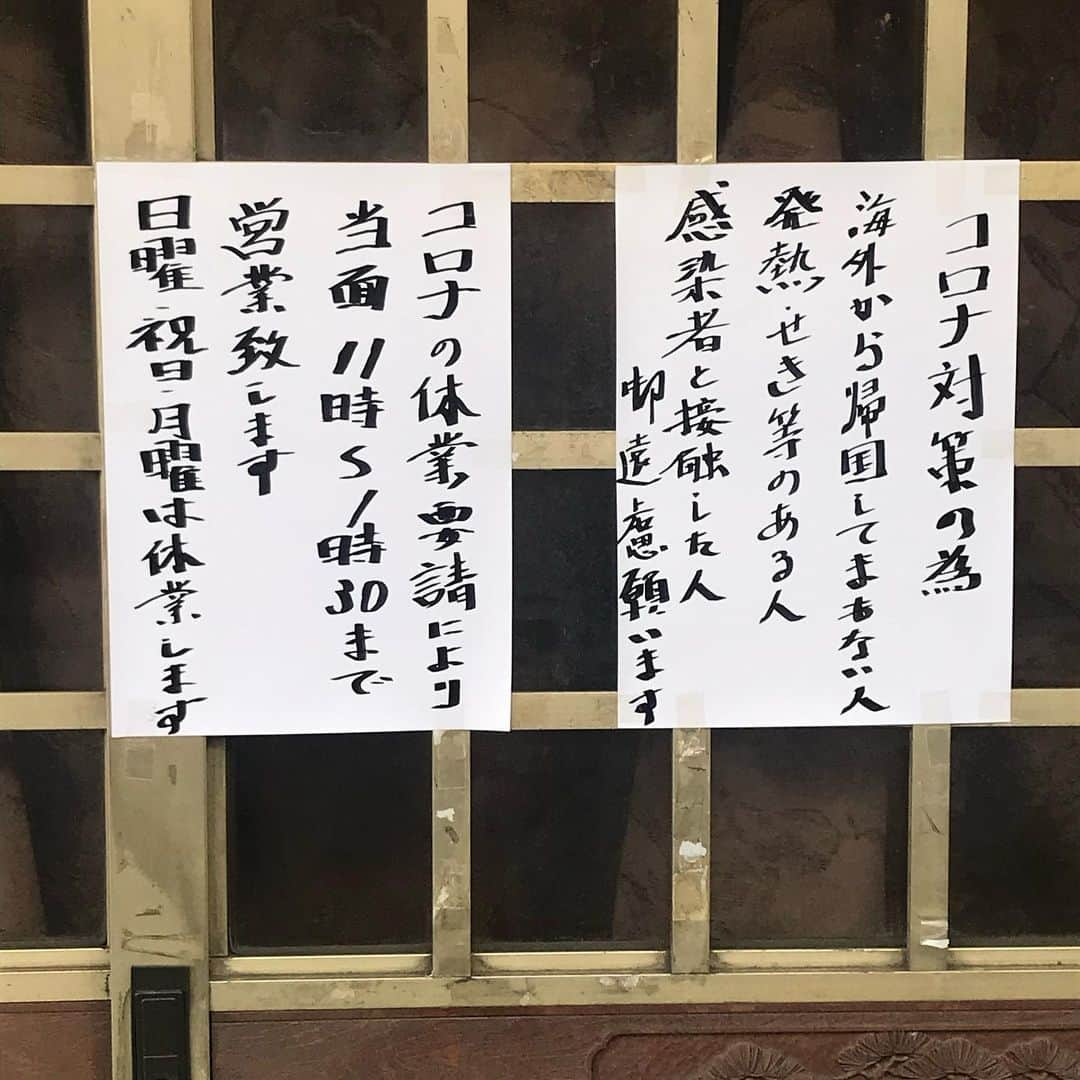 コロナ対策の為
海外から帰国してまもない人
発熱・せき等のある人
感染者と接触した人
御遠慮願います
コロナの休業要請により
当面11時〜1時30まで
営業致します
日曜・祝日・月曜は休業します